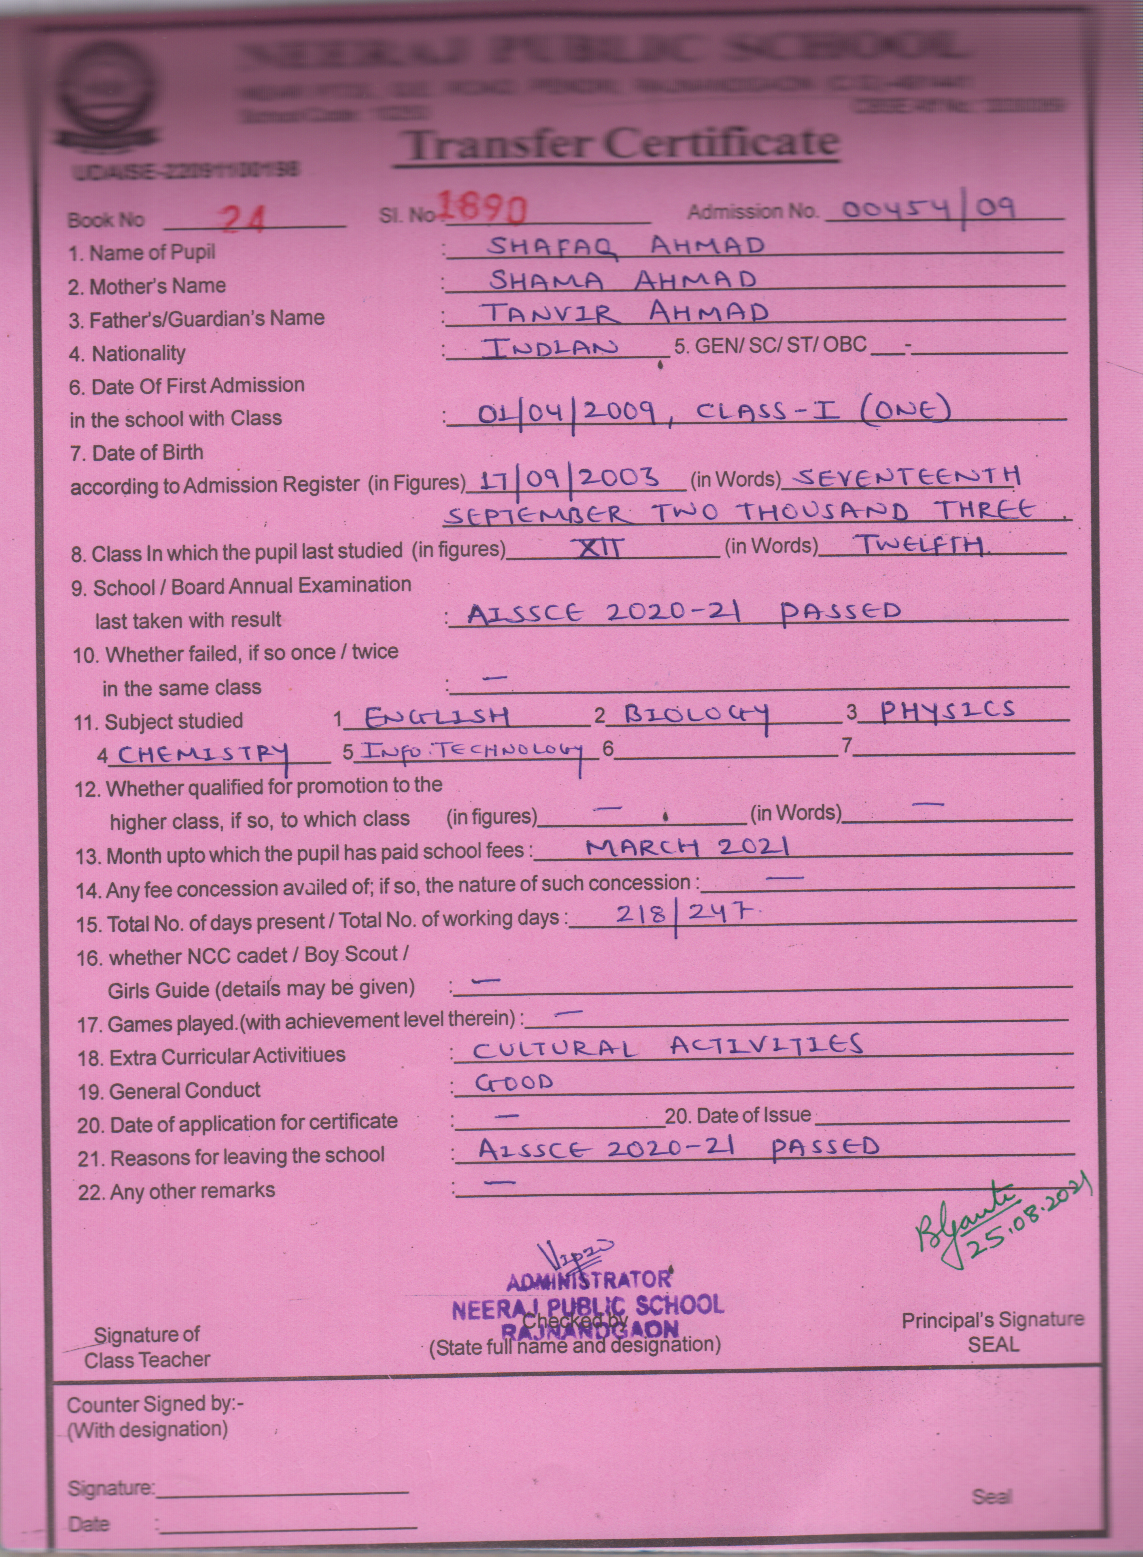 NEERAJ PUBLIC SCHOOL
Transfer Certificate
UDAISE-22091100198
Book No 24 Sl. No 1890 Admission No. 00454/09
1. Name of Pupil : SHAFAQ AHMAD
2. Mother's Name : SHAMA AHMAD
3. Father's/Guardian's Name : TANVIR AHMAD
4. Nationality : INDIAN 5. GEN/ SC/ ST/ OBC -
6. Date Of First Admission
in the school with Class : 01/04/2009, CLASS-I (ONE)
7. Date of Birth
according to Admission Register (in Figures) 17/09/2003 (in Words) SEVENTEENTH
SEPTEMBER TWO THOUSAND THREE.
8. Class In which the pupil last studied (in figures) XII (in Words) TWELFTH.
9. School / Board Annual Examination
last taken with result : AISSCE 2020-21 PASSED
10. Whether failed, if so once / twice
in the same class : —
11. Subject studied 1 ENGLISH 2 BIOLOGY 3 PHYSICS
4 CHEMISTRY 5 INFO. TECHNOLOGY 6 7
12. Whether qualified for promotion to the
higher class, if so, to which class (in figures) — (in Words) —
13. Month upto which the pupil has paid school fees : MARCH 2021
14. Any fee concession availed of; if so, the nature of such concession : —
15. Total No. of days present / Total No. of working days : 218/247.
16. whether NCC cadet / Boy Scout /
Girls Guide (details may be given) : —
17. Games played.(with achievement level therein) : —
18. Extra Curricular Activitiues : CULTURAL ACTIVITIES
19. General Conduct : GOOD
20. Date of application for certificate : — 20. Date of Issue
21. Reasons for leaving the school : AISSCE 2020-21 PASSED
22. Any other remarks : —
25.08.2021
ADMINISTRATOR
NEERAJ PUBLIC SCHOOL
RAJNANDGAON
Signature of
Class Teacher
Checked by
(State full name and designation)
Principal's Signature
SEAL
Counter Signed by:-
(With designation)
Signature:
Seal
Date :